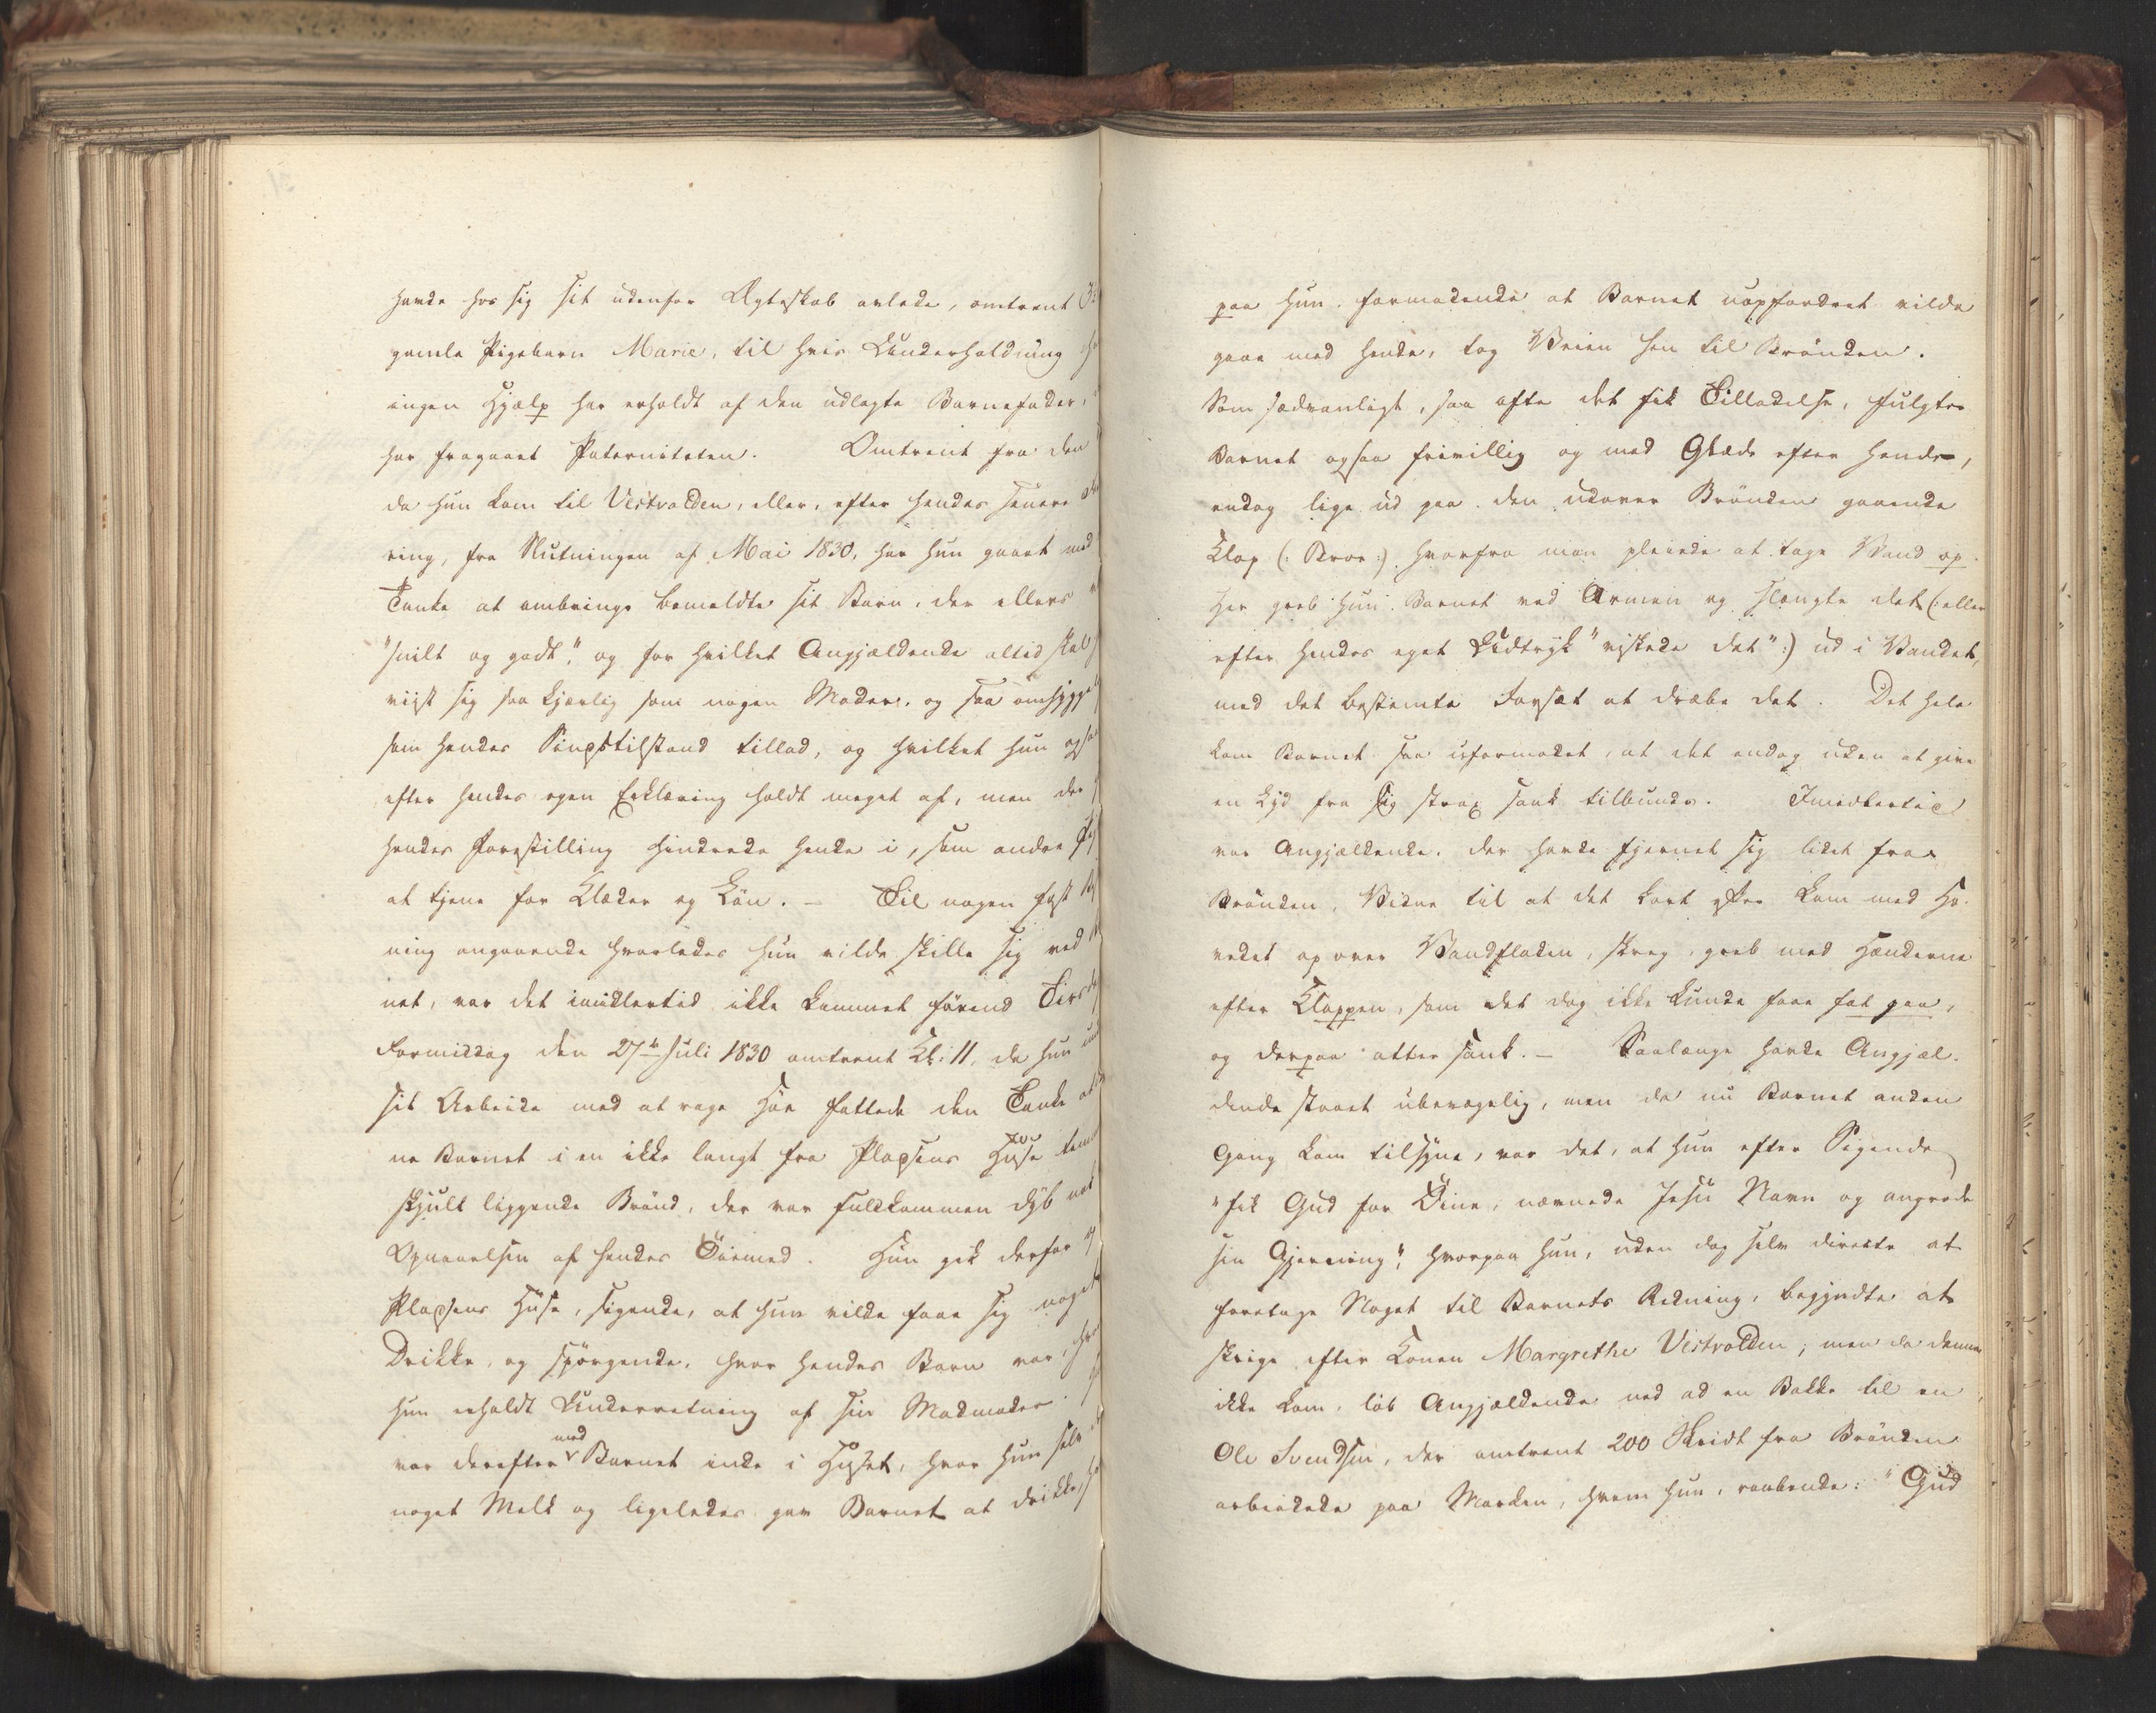 havde hos sig sit udenfor Ægteskab avlede, omtrent
gamle Pigebarn Marie, til hvis Underholdning
ingen Hjælp har erholdt af den udlagte Barnefader,
har fragaaet Paterniteten. Omtrent fra den
da hun kom til Vestvolden, eller, efter hendes senere
ring, fra Slutningen af Mai 1830, har hun gaaet med
Tanke at ombringe bemeldte sit Barn, der ellers
"snilt og godt," og for hvilket Angjældende altid skal
viist sig saa kjærlig som nogen Moder, og saa omhygge
som hendes Sindstilstand tillod, og hvilket hun ogsaa
efter hendes egen Erklæring holdt meget af, men der
hendes Forestilling hindrede hende i, som andre
at tjene for Klæder og Løn. – Til nogen fast
ning angaaende hvorledes hun vilde skille sig ved
net, var det imidlertid ikke kommet førend Tirsd
Formiddag den 27de Juli 1830 omtrent Kl: 11, da hun
sit Arbeide med at rage Høe fattede den Tanke at
ne Barnet i en ikke langt fra Pladsens Huse
skjult liggende Brønd, der var fuldkommen dyb nok
Opnaaelsen af hendes Øiemed. Hun gik derfor
Pladsens Huse, sigende, at hun vilde faae sig noget
Drikke, og spørgende, hvor hendes Barn var,
hun erholdt Underretning af sin Madmoder.
var derefter med Barnet inde i Huset, hvor hun selv
noget Melk og ligeledes gav Barnet at drikke,
paa hun formodende at Barnet uopfordret vilde
gaae med hende, tog Veien hen til Brønden.
Som sædvanligt, saa ofte det fik Tilladelse, fulgte
Barnet ogsaa frivillig og med Glæde efter hende,
endog lige ud paa den udover Brønden gaaende
Klop (: Broe :) hvorfra man pleiede at tage Vand op.
Her greb hun Barnet ved Armen og slengte det (: eller
efter hendes eget Udtryk "viskede det" :) ud i Vandet,
med det bestemte Forsæt at dræbe det. Det hele
kom Barnet saa uformodet, at det endog uden at give
en Lyd fra sig strax sank tilbunds. Imidlertid
var Angjældende, der havde fjernet sig lidt fra
Brønden, Vidne til at det kort efter kom med Ho-
vedet op over Vandfladen, skreg, greb med Hænderne
efter Kloppen, som det dog ikke kunde faae fat paa,
og derpaa atter sank. – Saalænge havde Angjæl-
dende staaet ubevægelig, men da nu Barnet anden
Gang kom tilsyne, var det, at hun efter Sigende
"fik Gud for Øine, nævnede Jesu Navn og angrede
sin Gjerning", hvorpaa hun, uden dog selv directe at
foretage Noget til Barnets Redning, begyndte at
skrige efter Konen Margrethe Vestvolden; men da denne
ikke kom, løb Angjældende ned ad en Bakke til en
Ole Svendsen, der omtrent 200 Skridt fra Brønden
arbeidede paa Marken, hvem hun, raabende: "Gud